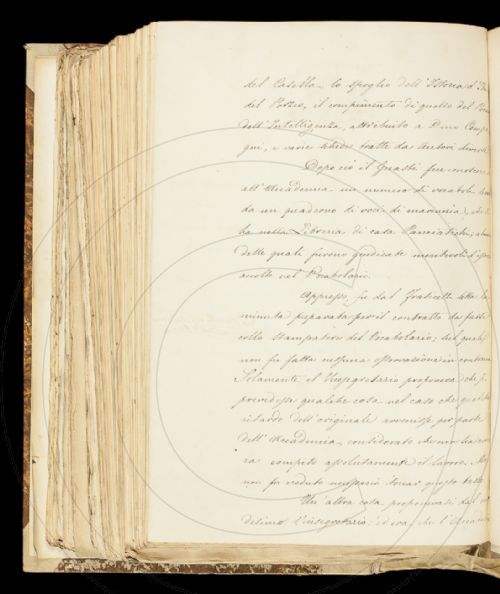 del Casella, lo spoglio dell'Istoria d'
del Porzio, il compimento di quello del
dell'Intelligenza, attribuito a Dino Comp
gni, e varie schede tratte da Autori diversi
Dopo ciò il Guasti fece
all'Accademia un numero di vocaboli
da un quaderno di voci di marineria, che
ha nella Libreria di casa Panciatichi;
delle quali furono giudicate meritevoli d'
accolte nel Vocabolario.
Appresso, fu dal Fraticelli letta la
minuta preparata per il contratto da farsi
collo stampatore del Vocabolario; sul quale
non fu fatta nessuna osservazione in contrario
Solamente il Vicesegretario proponeva che si
prevedesse qualche cosa nel caso che qualche
ritardo dell'originale avvenisse per parte
dell'Accademia, considerato che non ha
ra compito assolutamente il lavoro. Ma
non fu creduto necessario toccar questo tasto
Un'altra cosa proponevasi dal
desimo Vicesegretario: ed era, che l'Accade